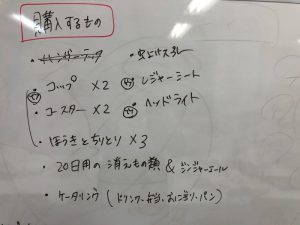 購入するもの
コップ ×2
レジャーシート
コースター ×2
ヘッドライト
ほうきとちりとり ×3
20日用の消えもの類 & ジンジャーエール
ケータリング (ドリンク、弁当、おにぎり、パン)